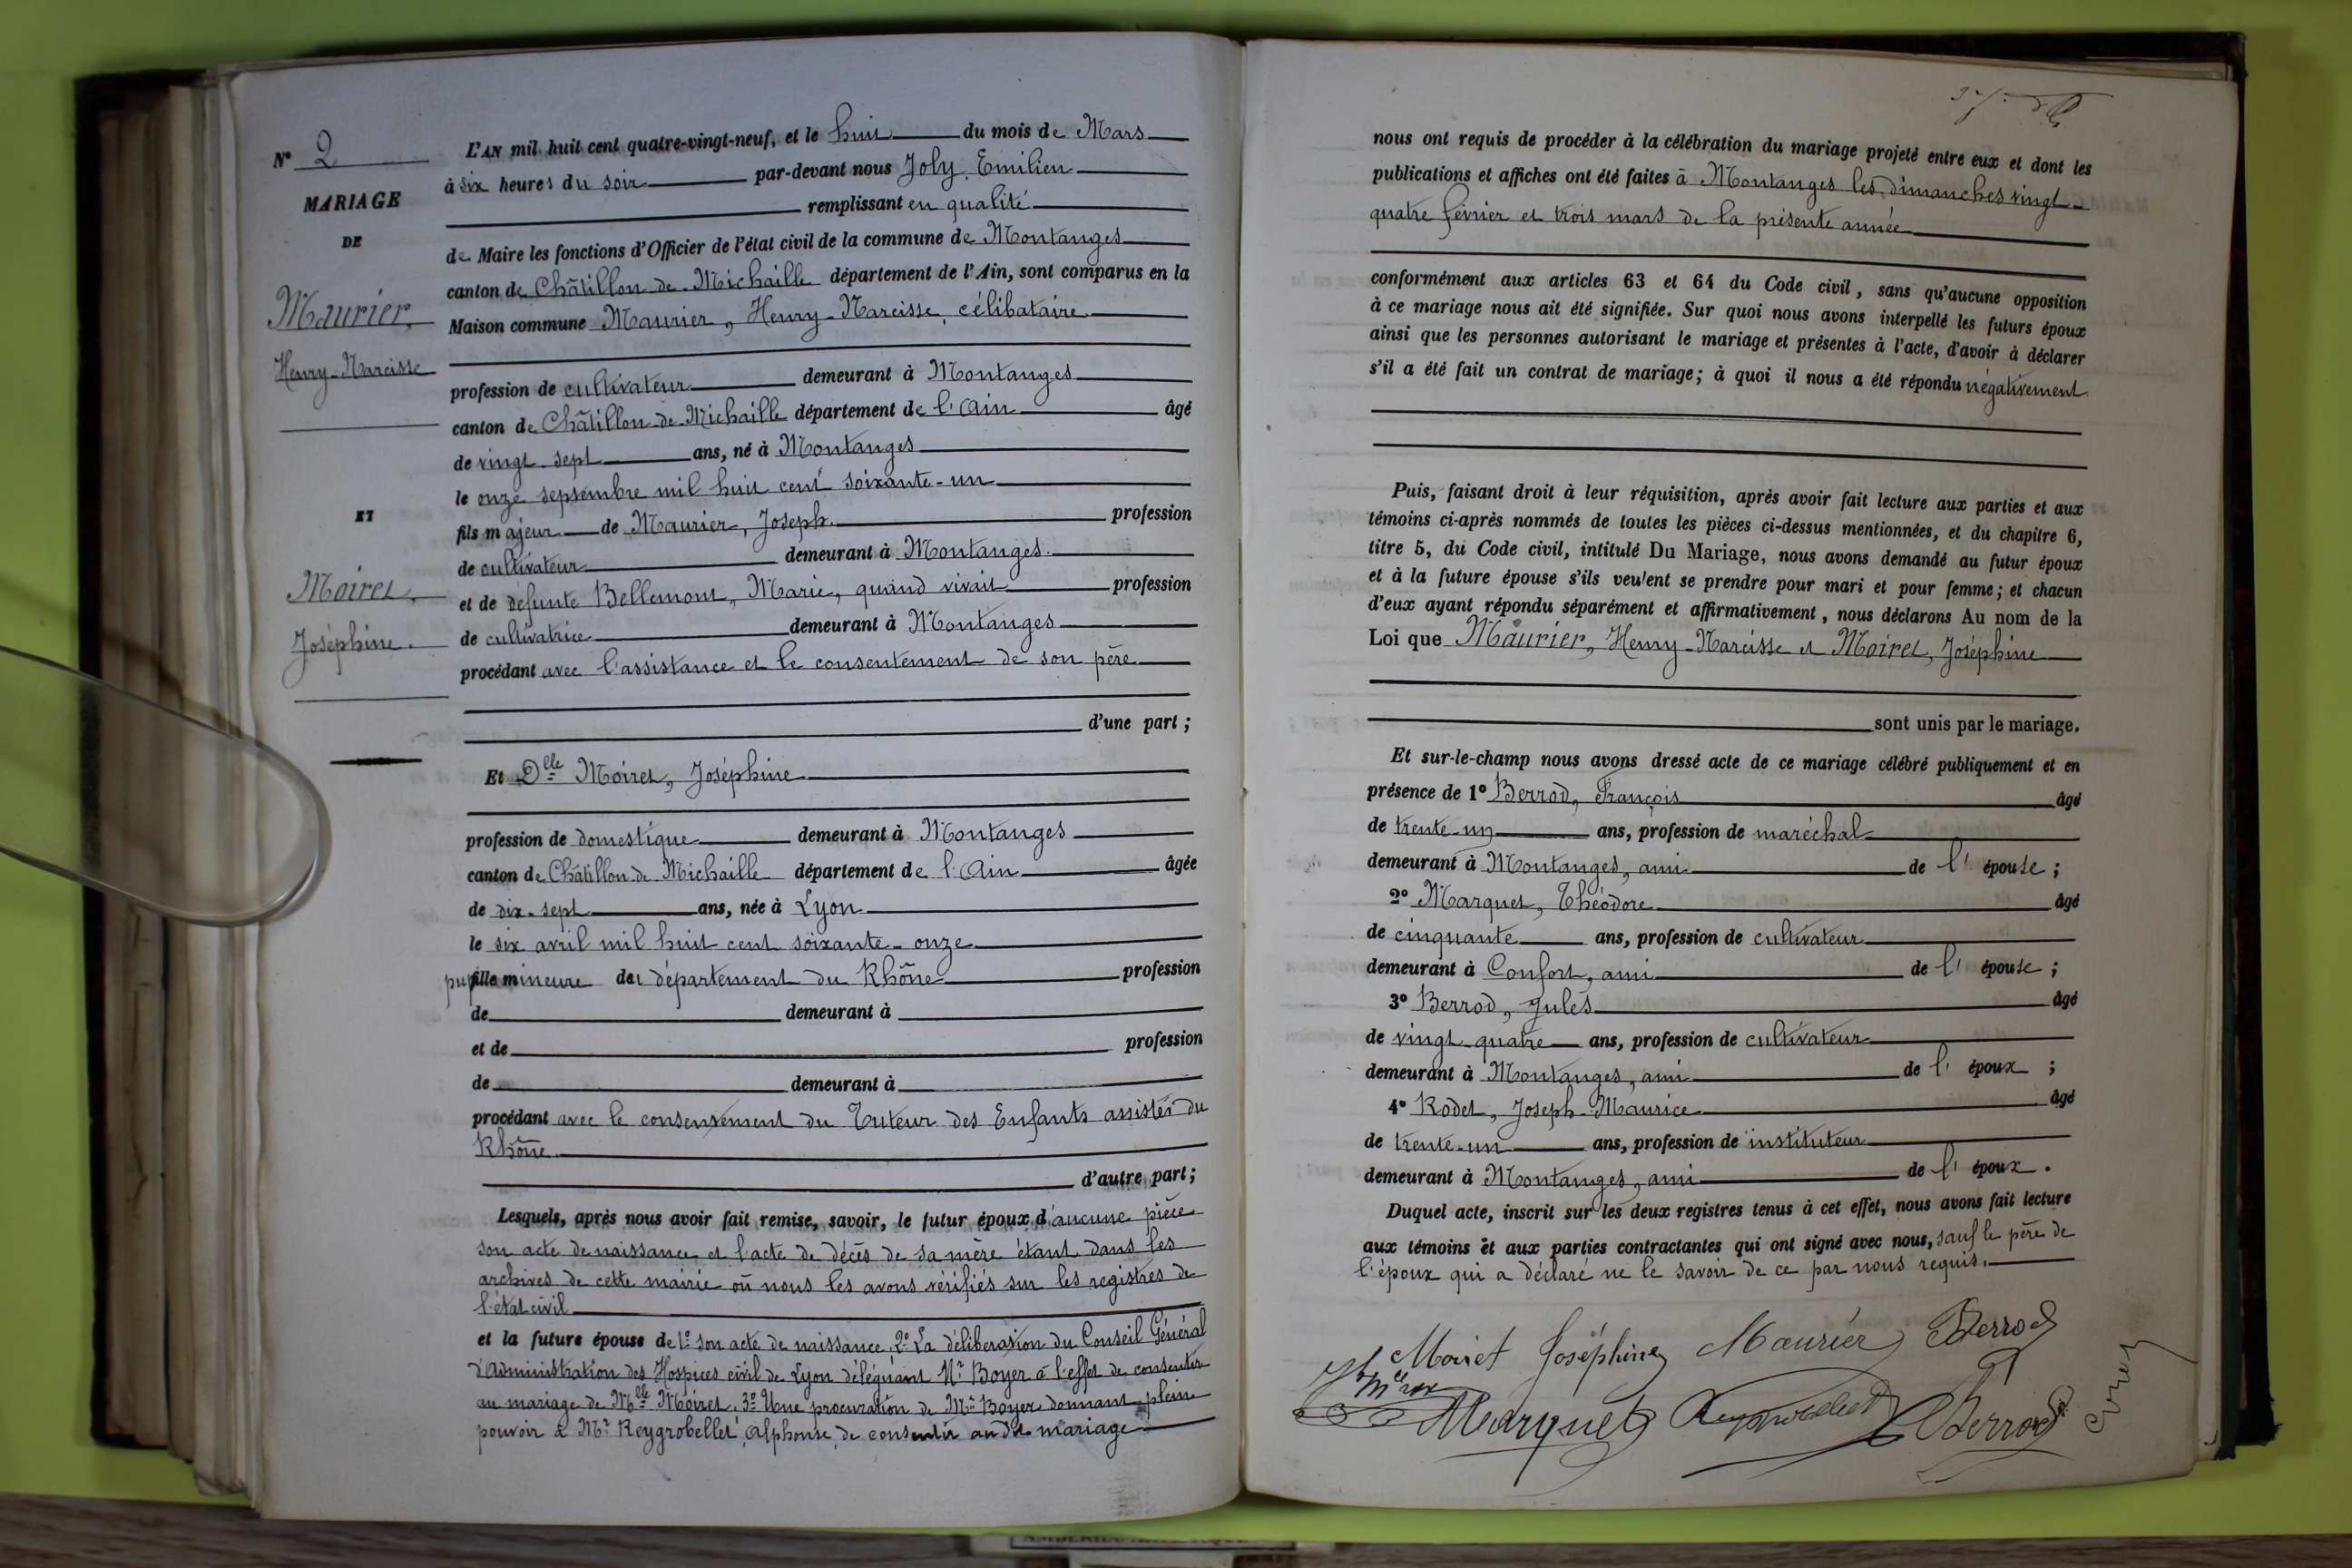 N° 2
MARIAGE
DE
Maurier,
Henry-Narcisse
ET
Moiret,
Joséphine.
L'AN mil huit cent quatre-vingt-neuf, et le huit du mois de Mars
à six heures du soir par-devant nous Joly, Emilien
remplissant en qualité
de Maire les fonctions d'Officier de l'état civil de la commune de Montanges
canton de Châtillon-de-Michaille département de l'Ain, sont comparus en la
Maison commune Maurier, Henry-Narcisse, célibataire
profession de cultivateur demeurant à Montanges
canton de Châtillon-de-Michaille département de l'Ain âgé
de vingt-sept ans, né à Montanges
le onze septembre mil huit cent soixante-un
fils majeur de Maurier, Joseph profession
de cultivateur demeurant à Montanges
et de défunte Bellemont, Marie, quand vivait profession
de cultivatrice demeurant à Montanges
procédant avec l'assistance et le consentement de son père
d'une part ;
Et Delle Moiret, Joséphine
profession de domestique demeurant à Montanges
canton de Châtillon-de-Michaille département de l'Ain âgée
de dix-sept ans, née à Lyon
le six avril mil huit cent soixante-onze
pupille mineure du département du Rhône profession
de demeurant à
et de profession
de demeurant à
procédant avec le consentement du Tuteur des Enfants assistés du
Rhône
d'autre part ;
Lesquels, après nous avoir fait remise, savoir, le futur époux d'aucune pièce
son acte de naissance et l'acte de décès de sa mère étant dans les
archives de cette mairie où nous les avons vérifiés sur les registres de
l'état civil
et la future épouse de 1° son acte de naissance. 2° La délibération du Conseil Général
d'Administration des Hospices civil de Lyon déléguant Mr Boyer à l'effet de consentir
au mariage de Melle Moiret. 3° Une procuration de Mr Boyer donnant plein
pouvoir à Mr Reygrobellet, Alphonse, de consentir au dit mariage
nous ont requis de procéder à la célébration du mariage projeté entre eux et dont les
publications et affiches ont été faites à Montanges les dimanches vingt-
quatre février et trois mars de la présente année
conformément aux articles 63 et 64 du Code civil, sans qu'aucune opposition
à ce mariage nous ait été signifiée. Sur quoi nous avons interpellé les futurs époux
ainsi que les personnes autorisant le mariage et présentes à l'acte, d'avoir à déclarer
s'il a été fait un contrat de mariage ; à quoi il nous a été répondu négativement
Puis, faisant droit à leur réquisition, après avoir fait lecture aux parties et aux
témoins ci-après nommés de toutes les pièces ci-dessus mentionnées, et du chapitre 6,
titre 5, du Code civil, intitulé Du Mariage, nous avons demandé au futur époux
et à la future épouse s'ils veulent se prendre pour mari et pour femme ; et chacun
d'eux ayant répondu séparément et affirmativement, nous déclarons Au nom de la
Loi que Maurier, Henry-Narcisse et Moiret, Joséphine
sont unis par le mariage.
Et sur-le-champ nous avons dressé acte de ce mariage célébré publiquement et en
présence de 1° Berrod, François âgé
de trente-un ans, profession de maréchal
demeurant à Montanges, ami de l'épouse ;
2° Marquet, Théodore âgé
de cinquante ans, profession de cultivateur
demeurant à Confort, ami de l'épouse ;
3° Berrod, Jules âgé
de vingt-quatre ans, profession de cultivateur
demeurant à Montanges, ami de l'époux ;
4° Rodet, Joseph-Maurice âgé
de trente-un ans, profession de instituteur
demeurant à Montanges, ami de l'époux.
Duquel acte, inscrit sur les deux registres tenus à cet effet, nous avons fait lecture
aux témoins et aux parties contractantes qui ont signé avec nous, sauf le père de
l'époux qui a déclaré ne le savoir de ce par nous requis.
Moiret Joséphine Maurier Berrod
Marquet Reygrobellet Berrod